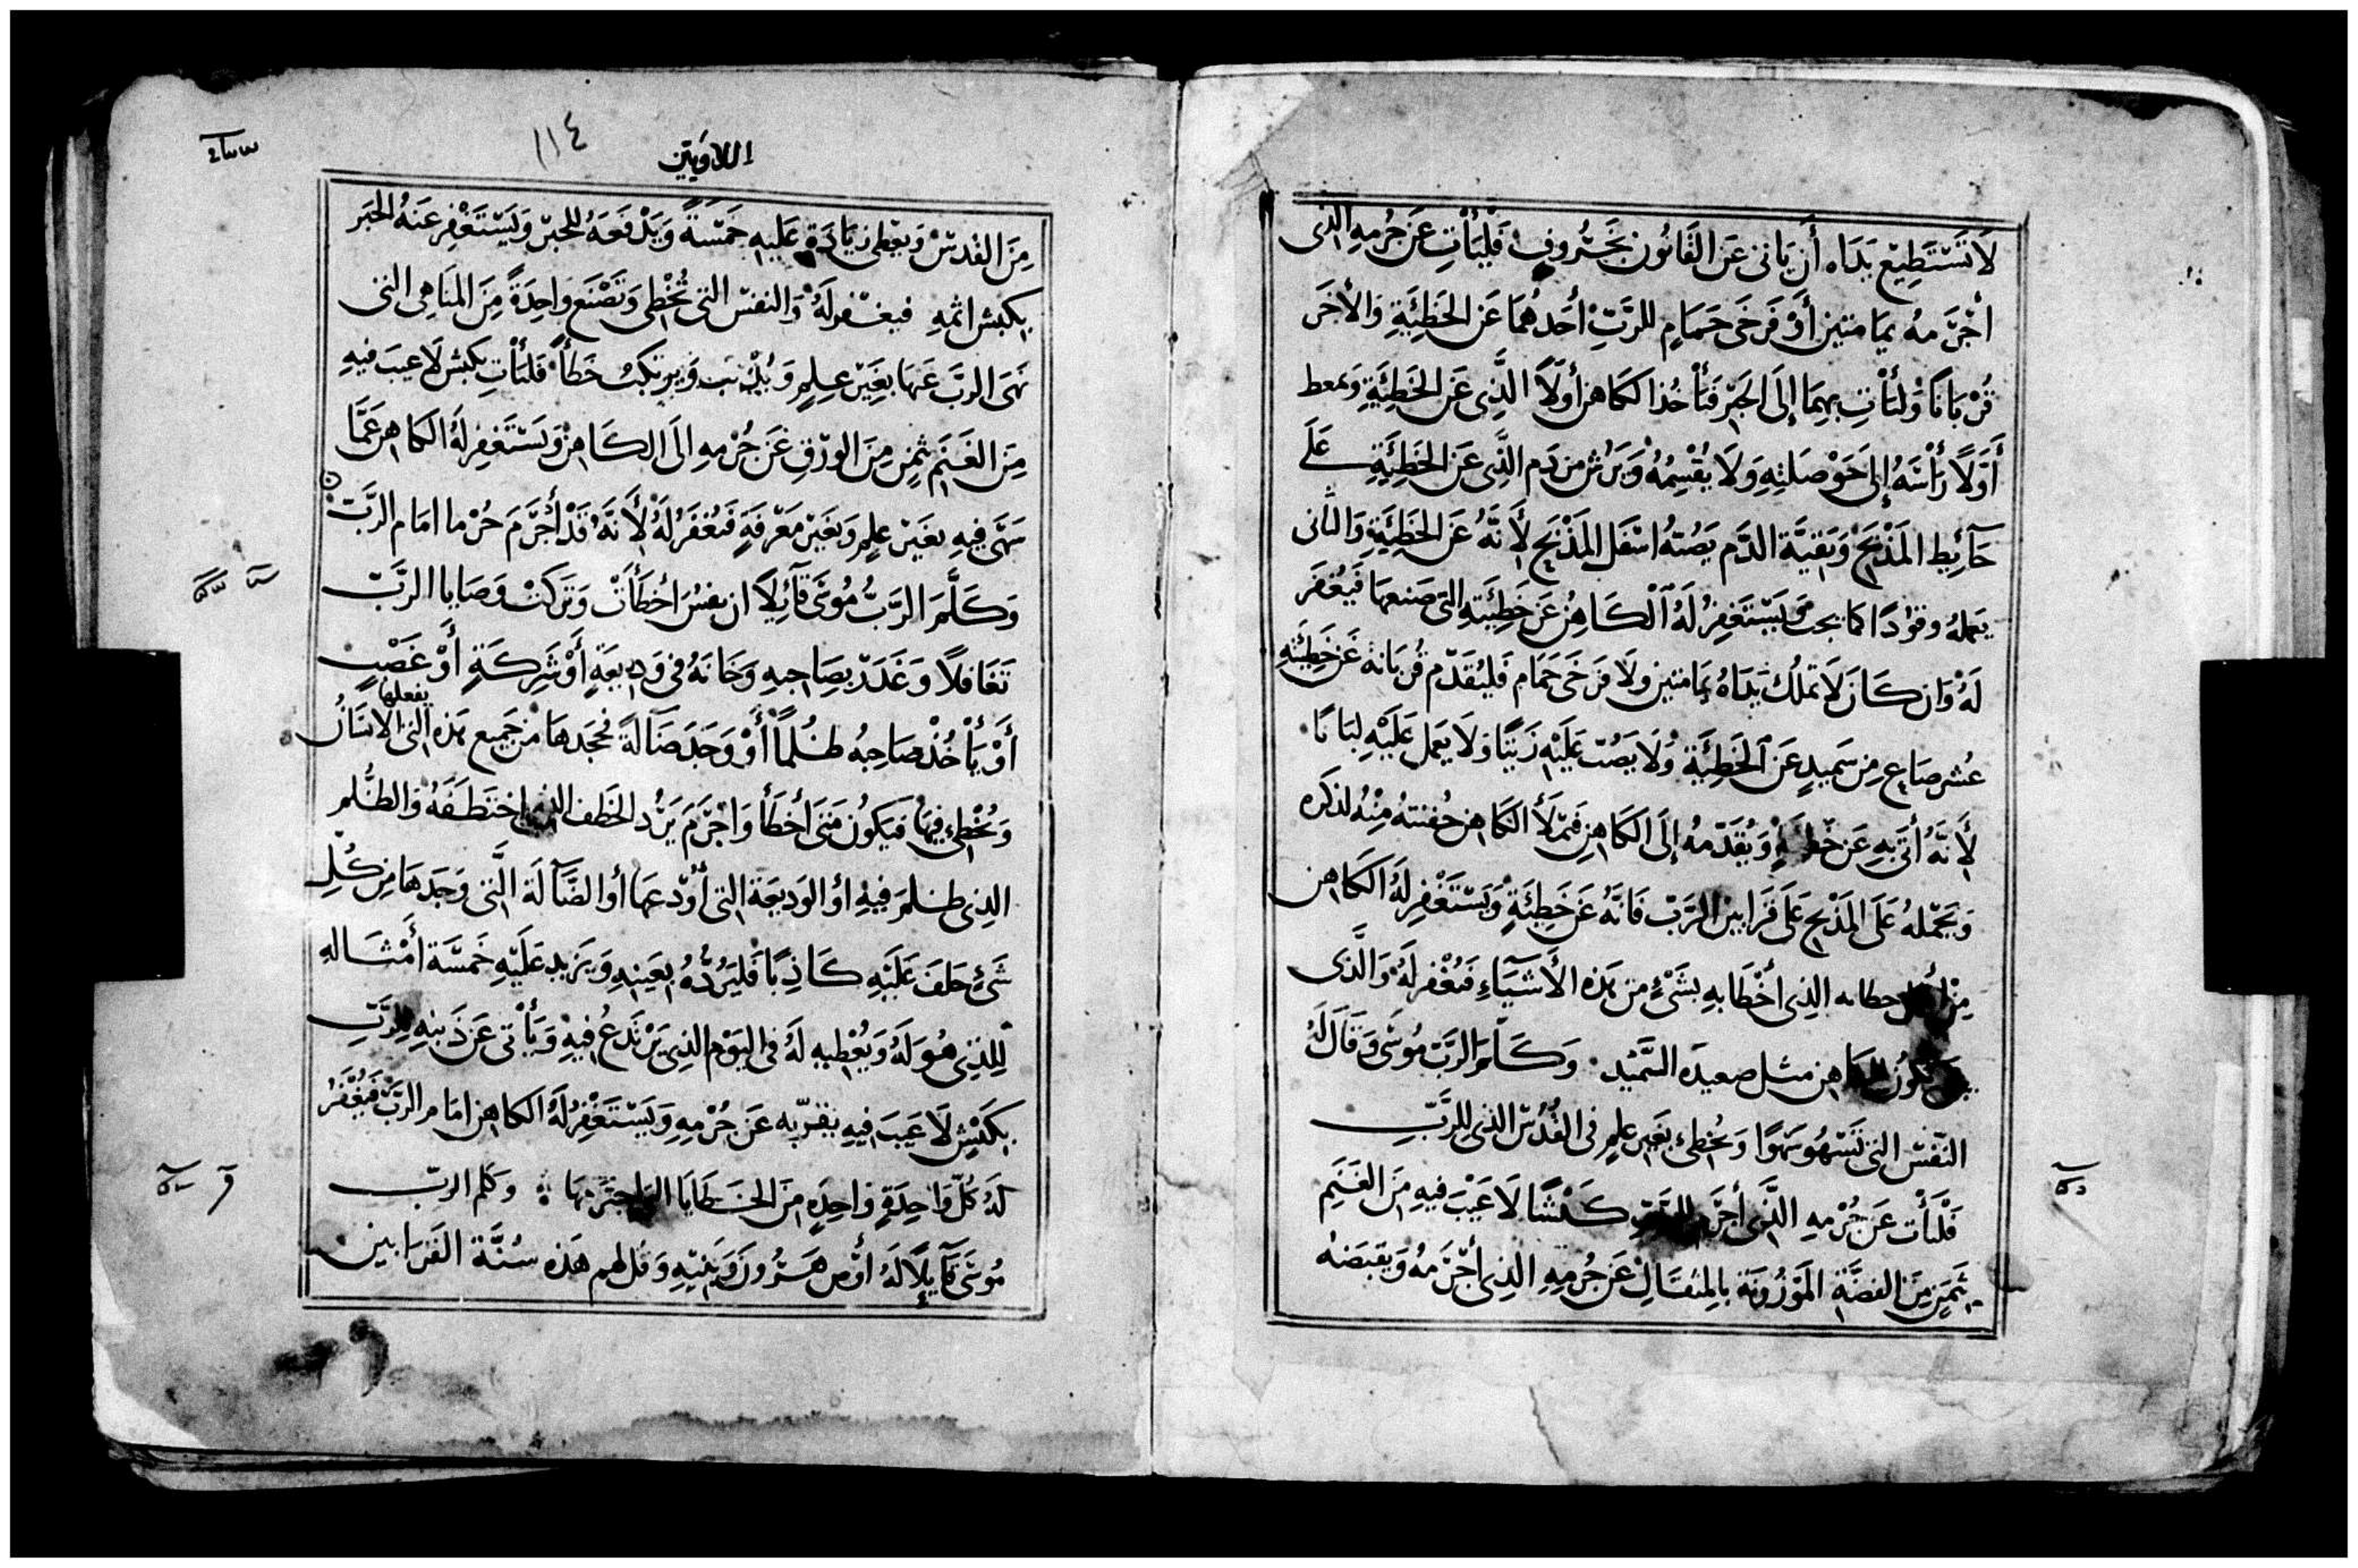 لَا تَسْتَطِيْع يَدَاه أَن يَاتى عَن القَانُون بخَرُوفٍ فَليَأتِ عَن جُرمِهِ الذى
أجْرَمهُ بيَمامتين أَوْ فَرخَى حَمَامٍ للرَّبِّ أَحَدهُمَا عَن الخَطِيَّةِ وَالأخَر
قُرْبَانًا وَليَأتِ بِهِمَا إِلَى الحَبْر فَيَأخُذ الكَاهن أَولًا الَّذِى عَن الخَطِيَّةِ وَيمعط
أَوَّلًا رَأْسَهُ إِلَى حَوْصَلتِهِ وَلَا يُقْسِمُهُ وَيَرُش مِن دَم الَّذِى عَن الخَطِيَّةِ عَلَى
حَآئِط المَذْبَح وَبَقيَّة الدَّم يَصُبّهُ اسْفَل المَذْبَح لِأَنَّهُ عَن الخَطِيَّةِ وَالثَانى
يَعملهُ وقوُدًا كمَا يجب وَيَسْتَغفِرُ لَهُ الكَاهِنُ عَن خَطِيَتِهِ التى صَنعهَا فَيُغْفَر
لَهُ وَان كَانَ لَا تملكُ يَدَاهُ يَمَامتين وَلَا فَرخَى حَمَام فَليُقَدّم قُربَانَهُ عَن خَطِيَّتِهِ
عُشر صَاعٍ مِن سَمِيدٍ عَن الخَطِيَّة وَلَا يَصُبّ عَلَيْهِ زَيتًا وَلَا يَعمل عَلَيْهِ لبَانًا
لأَنَّهُ أتى بِهِ عَن خَطِيَةٍ وَيُقَدّمهُ إلَى الكَاهِنِ فَيَملَأ الكَاهِن حُفْنتهُ مِنْهُ لذكره
وَيَجْعَلهُ عَلَى المَذْبَح عَلَى قَرَابين الرَّبّ فَانَّهُ عَن خَطِيَّةٍ وَيَسْتَغْفِر لَهُ الكَاهن
مِن أجل خطاىه الذِى أَخْطَا بِهِ بشَىْءٍ من هَذه الأَشيَاءِ فَيُغْفر لَهُ وَالَّذى
يَكُونُ للكَاهِن مثل صعيدَه السَّمِيْد وَكَلَّمَ الرَبّ مُوسَى وَقَالَ لَهُ
النَّفسْ التى تَسْهُو سَهْوًا وَتُخطِى بغَير عِلمٍ فى القُدُسْ الذى للرَّبِّ
فَلْتَأت عَن جُرْمِهِ الَّذى أجرَمَ للرَّبّ كَبْشًا لَا عَيْبَ فيهِ مِنَ الغَنَمِ
بثمَنٍ مِنَ الفضَّةِ المَوْزُونَة بالِمثقَالِ عَن جُرمِهِ الذِى أَجْرَمهُ وَيَقبَضهُ
اللاويين
١١٤
مِنَ القُدسْ وَيعْطِى زيَادَة عَلَيهِ خَمْسَةً وَيَدْفَعَهُ للحَبْر وَيَسْتَغْفِر عَنهُ الحَبر
بِكبش اثمهِ فيغْفر لَهُ وَالنَفسْ التى تُخْطِى وَتَصْنَع وَاحِدَةً مِنَ المَنَاهِى التى
نَهَى الرَبَّ عَنهَا بغَيْر عِلمٍ وَيُذْنب وَيَرتَكبُ خَطأ فَلتَأتِ بكبش لَا عيبَ فيهِ
مِنَ الغَنَمِ بثمنٍ مِنَ الورْقِ عَن جُرْمهِ الىَ الكَاهِنْ وَيَسْتَغْفِر لَهُ الكَاهن عَمَّا
سَهَى فِيهِ بغَيْر عِلمٍ وَبغَيْر مَعْرفَةٍ فَيُغْفَرُ لَهُ لأَنَّهُ قَدْ أجْرَمَ جُرْما امَام الرَّبّ
وَكَلَّمَ الرَبُّ مُوسَى قآئِلًا ان نفسُ اخْطَأتْ وَتَركتْ وَصَايا الرَّبّ
تَغَافلًا وَغَدَرَ بصَاحبهِ وَخَانَهُ فى وَديعَةٍ أَوْ شركَةٍ أَوْ غَصْبٍ
أَوْ يَأْخُذْ صَاحِبهُ ظُلمًا أَوْ وَجَدَ ضَآلةً فجَحَدهَا من جَمِيع هَذه التى يفعلها الانسَانُ
وَيُخْطِى فيهَا فيَكُونُ مَتَى أخْطَأ وَاجْرَمَ يَرُد الخَطف الذى اختَطَفَهُ وَالظُّلم
الذِى ظلَمَ فِيهِ اوْ الوَديعَة التى أُودعهَا أو الضَّآلَة الَّتى وَجَدهَا مِن كُلِّ
شَىْءٍ حَلفَ عَلَيْهِ كَاذِبًا فَليَرُدُّهُ بعَينِهِ وَيَزيد عَلَيْهِ خَمسَة أَمْثَالهِ
لِلذِى هُوَ لَهُ وَيُعْطِيهِ لَهُ فى اليَوْم الذِى يَرتَدعُ فِيهِ وَيَأتى عَن ذَنبهِ للرَّبّ
بكَبْشٍ لَا عَيبَ فيهِ يقرّبه عَن جُرْمِهِ وَيَسْتَغْفِرُ لَهُ الكاهن امَام الرَّبّ فَيُغْفَرُ
لَهُ كُلّ وَاحِدَةٍ وَاحِدَهٍ مِنَ الخطَايَا التى اجترمهَا وكلم الربّ
مُوسَى قآئِلًا لَهُ أوْص هَرُونَ وَبَنيهِ وَقل لهم هَذه سُنَّة القَرَابين